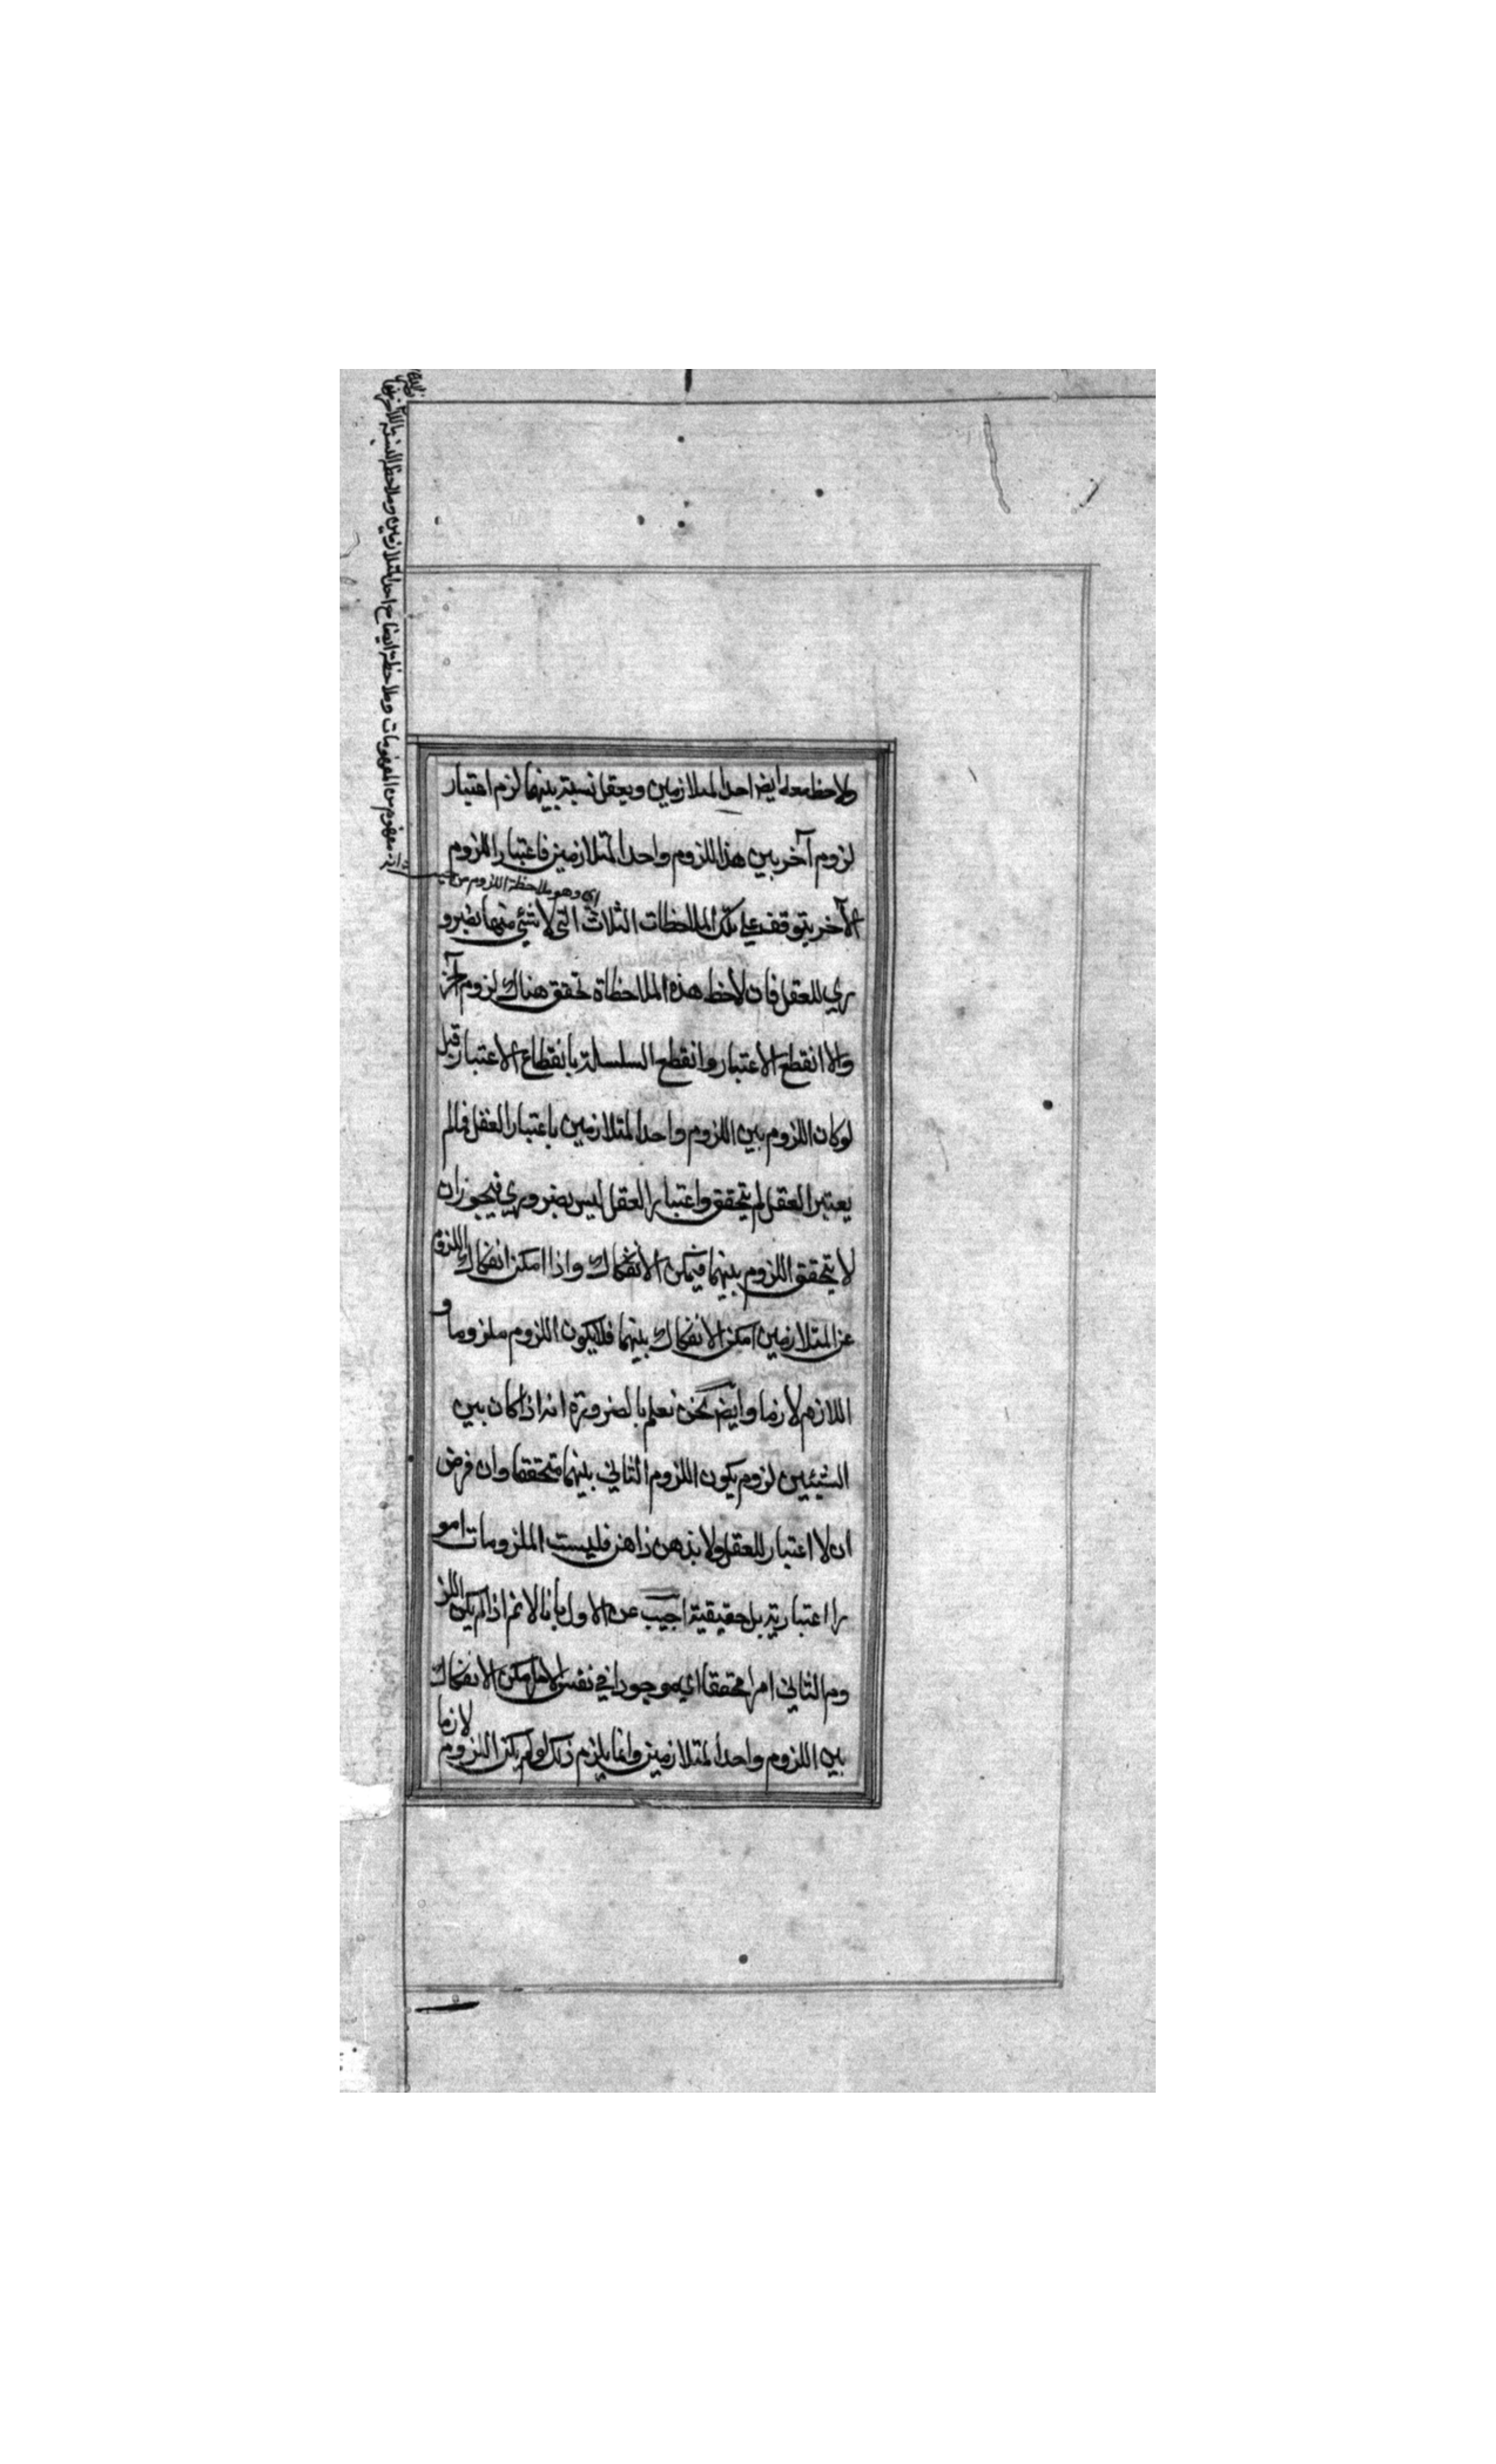 ولاحظ معه ايض احدا لمتلازمين ويعقل نسبته بينهما لزم اعتبار
لزوم آخر بين هذا اللزوم واحدا لمتلازمين فاعتبار اللزوم
اي وهو ملاحظة اللزوم من حيث انه مفهوم من المفهومات وملاحظة ايضاح احدا لمتلازمين وملاحظ النسبة
الآخر يتوقف علي تلك الملاحظات الثلاث التي لا شئي منها بضرو
ري للعقل فان لاحظ هذه الملاحظاة تحقق هناك لزوم آخر
والا انقطع الاعتبار وانقطع السلسلة بانقطاع الاعتبار قيل
لوكان اللزوم بين اللزوم واحدا لمتلازمين باعتبار العقل فمالم
يعتبر العقل لم يتحقق واعتبار العقل ليس بضروري فيجوز ان
لا يتحقق اللزوم بينهما فيمكن الانفكاك واذا امكن انفكاك اللزوم
عن المتلازمين امكن الانفكاك بينهما فلا يكون اللزوم ملزوما و
اللازم لازما وايض نحن نعلم بالضرورة انه اذا كان بين
الشيئين لزوم يكون اللزوم الثاني بينهما متحققا وان فرض
ان لا اعتبار للعقل ولا بذهن ذاهن فليست الملزومات امو
را اعتبارية بل حقيقية اجيب عن الاول بانا لا نم اذا لم يكن اللز
وم الثاني امرا محققا اي موجودا في نفس الامر امكن الانفكاك
بين اللزوم واحدا لمتلازمين وانما يلزم ذلك لو لم يكن اللزوم لازما